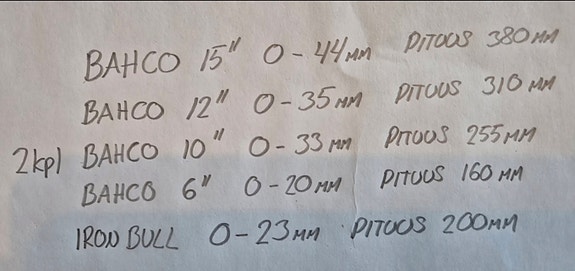 BAHCO 15" 0-44MM PITUUS 380MM
BAHCO 12" 0-35MM PITUUS 310MM
2kpl BAHCO 10" 0-33MM PITUUS 255MM
BAHCO 6" 0-20MM PITUUS 160MM
IRON BULL 0-23MM PITUUS 200MM